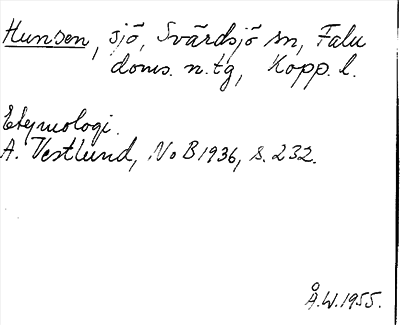 Hunsen, sjö, Svärdsjö sn, Falu
doms. n. tg, Kopp. l.
Etymologi.
A. Vestlund, NoB 1936, s. 232.
Å.W. 1955.